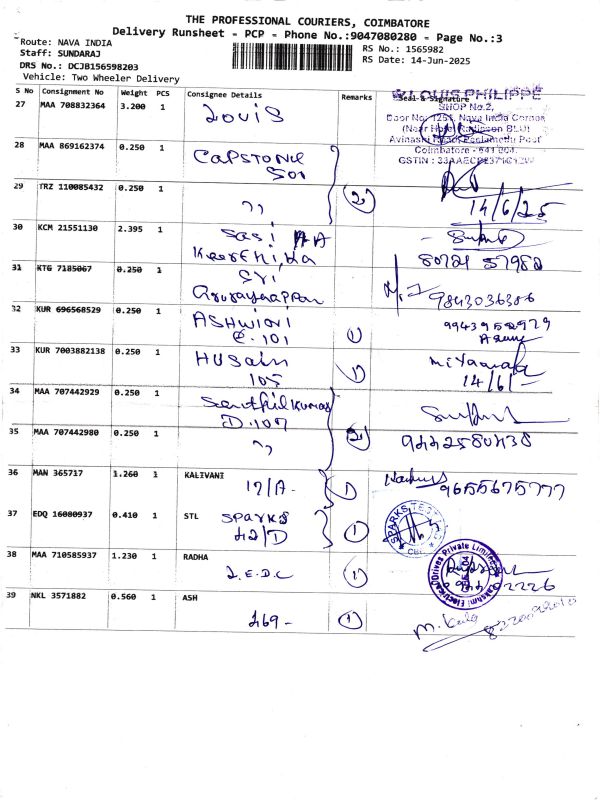 THE PROFESSIONAL COURIERS, COIMBATORE
Delivery Runsheet - PCP - Phone No.:9047080280 - Page No.:3
Route: NAVA INDIA
RS No.: 1565982
Staff: SUNDARAJ
RS Date: 14-Jun-2025
DRS No.: DCJB156598203
Vehicle: Two Wheeler Delivery
S No Consignment No Weight PCS Consignee Details Remarks Seal & Signature
LOUIS PHILIPPE
SHOP No.2,
Door No. 1251, Nava India Corner
(Near Hotel Radisson BLU)
Avinashi Road, Peelamedu Post
Coimbatore - 641 004.
27 MAA 708832364 3.200 1 Louis
28 MAA 869162374 0.250 1 CAPSTONE
501
29 TRZ 110085432 0.250 1 " 2
14/6/25
30 KCM 21551130 2.395 1 Sasi
Keerthika
31 KTG 7185067 0.250 1 Sri
9843036306
32 KUR 696568529 0.250 1 ASHWINI 1
C.101
33 KUR 7003882138 0.250 1 HUSAIN 1
105
14/6/-
34 MAA 707442929 0.250 1 Senthil Kumar
D.107
35 MAA 707442980 0.250 1 " 2
9442580438
36 MAN 365717 1.260 1 KALIVANI 1
17/A. 9655675777
37 EDQ 16080937 0.410 1 STL SPARKS 1
42/D
SPARKS TESTING
CBE
38 MAA 710585937 1.230 1 RADHA 1
L.E.D.C
Lakshmi Electrical Drives Private Limited
39 NKL 3571882 0.560 1 ASH 1
269-
M. Kala